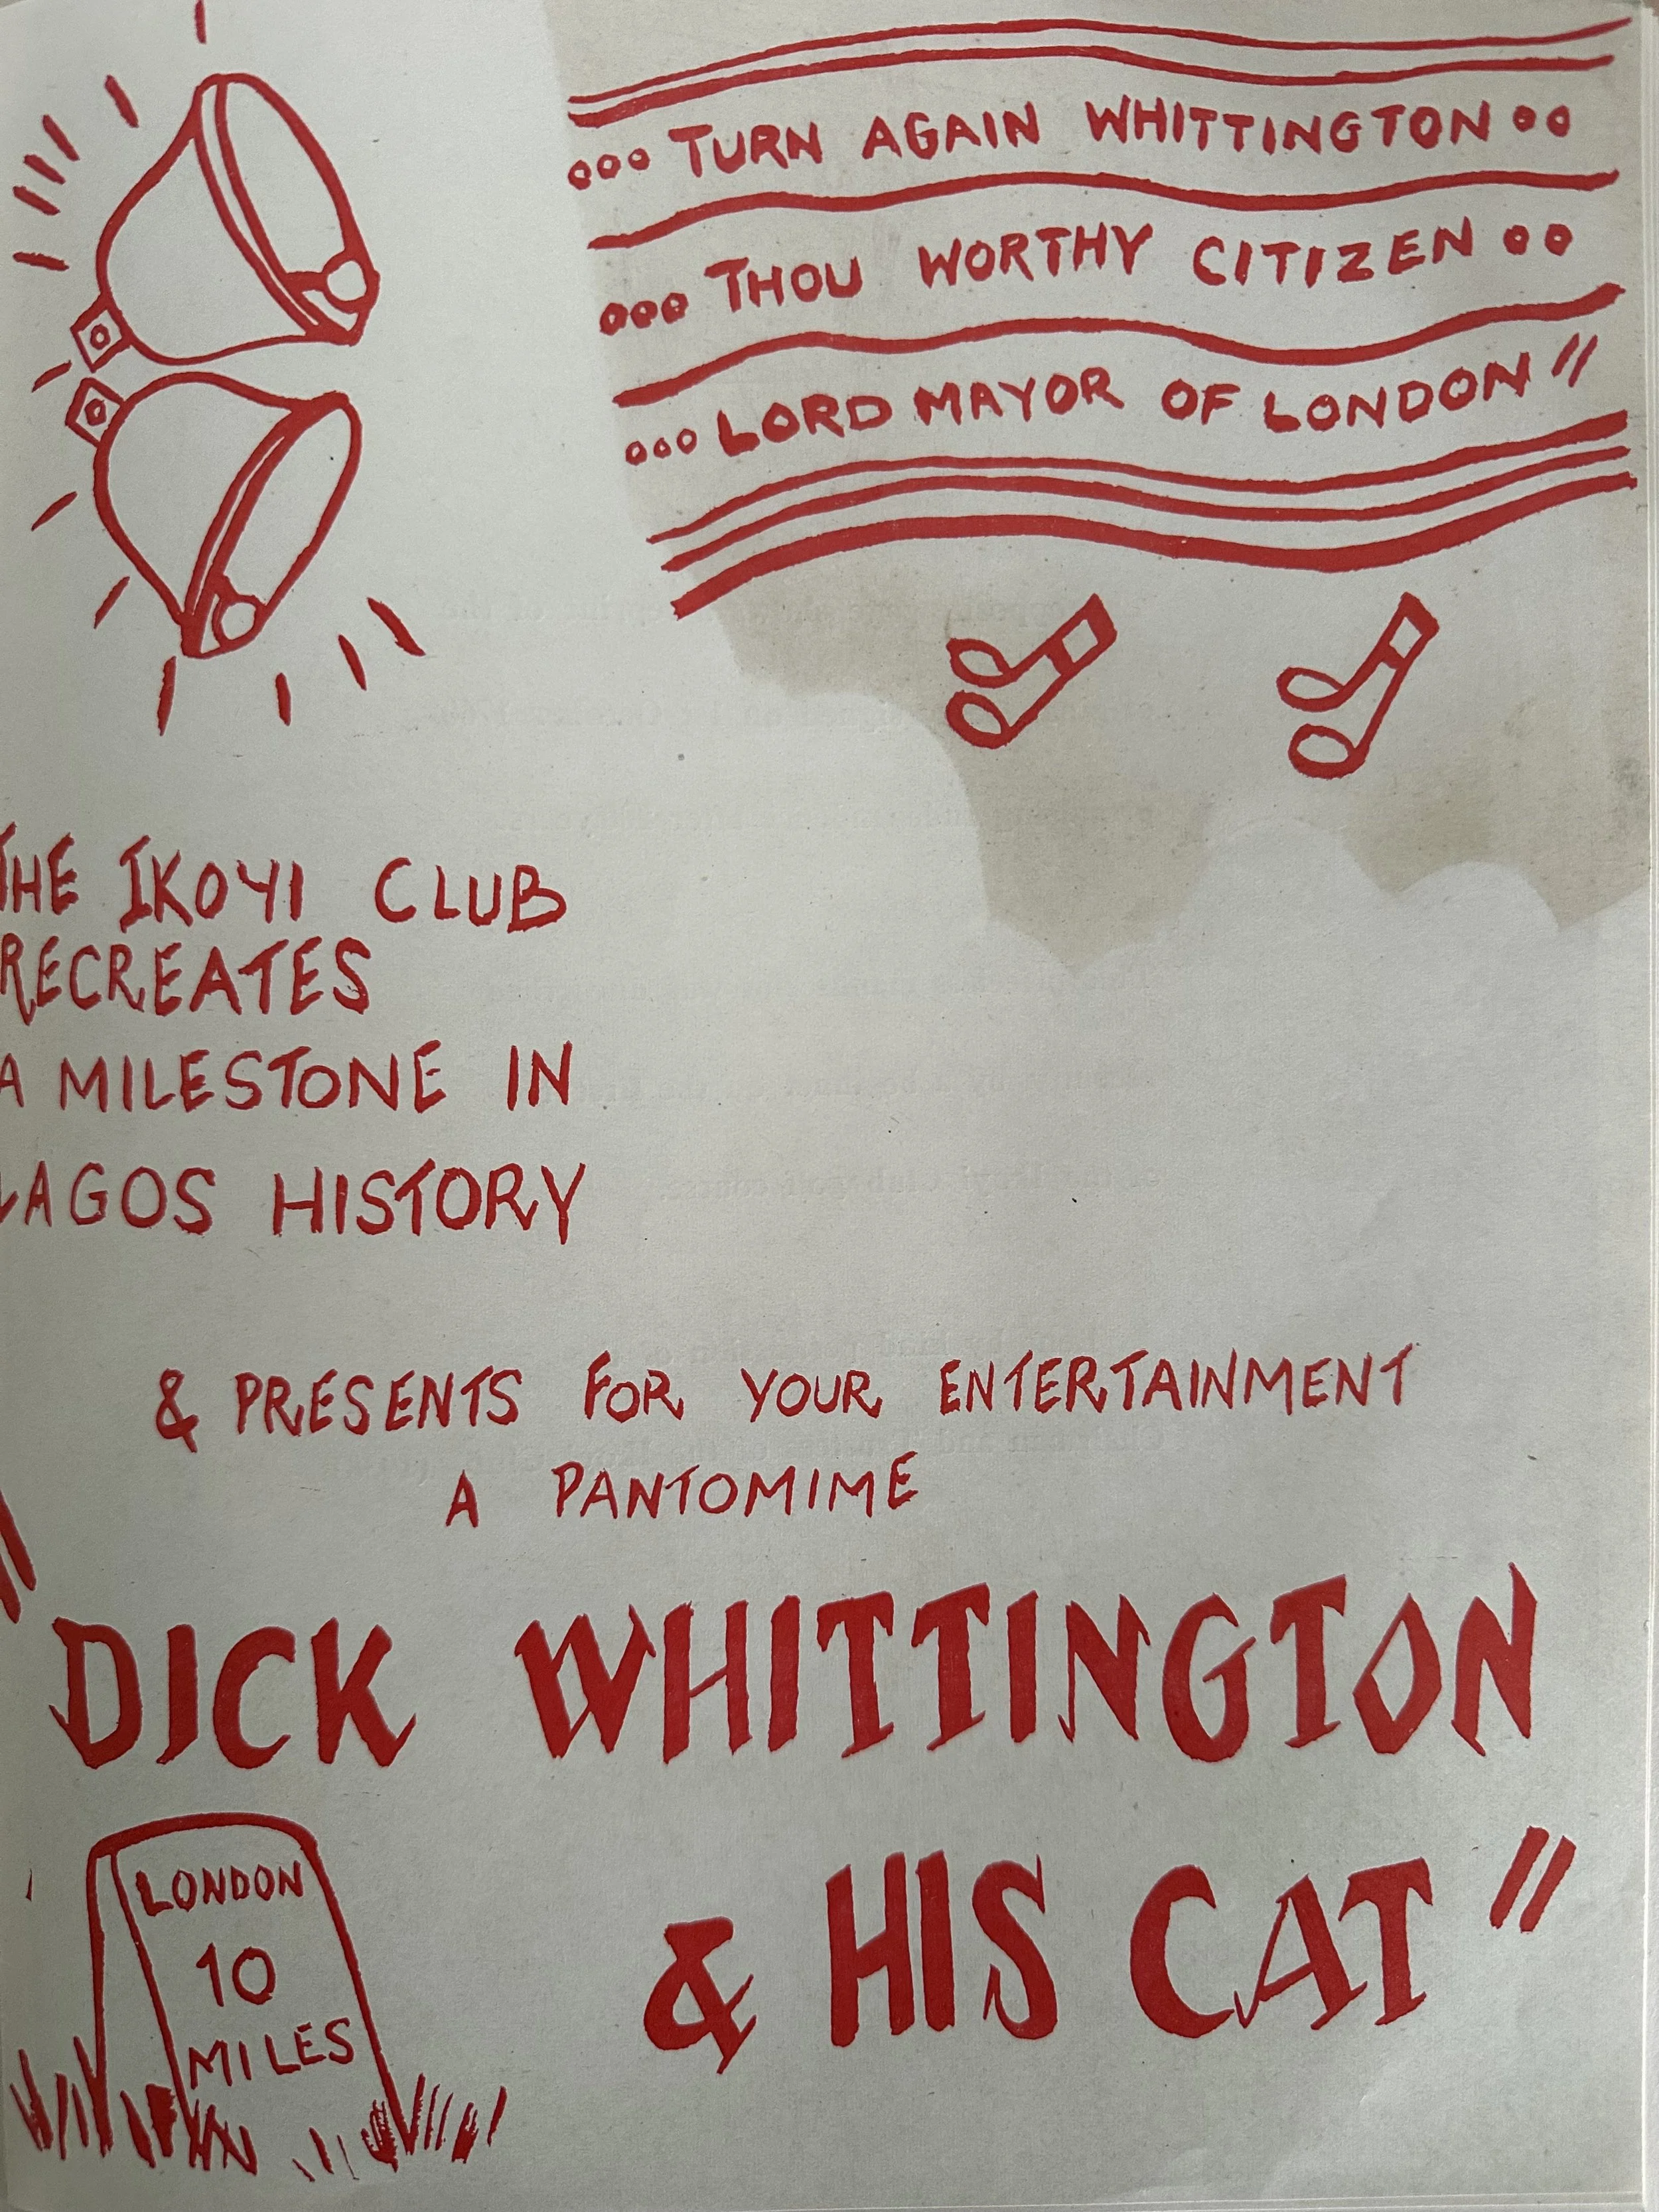 ooo TURN AGAIN WHITTINGTON oo
ooo THOU WORTHY CITIZEN oo
ooo LORD MAYOR OF LONDON"
THE IKOYI CLUB
RECREATES
A MILESTONE IN
LAGOS HISTORY
& PRESENTS FOR YOUR ENTERTAINMENT
A PANTOMIME
"DICK WHITTINGTON
& HIS CAT"
LONDON
10
MILES